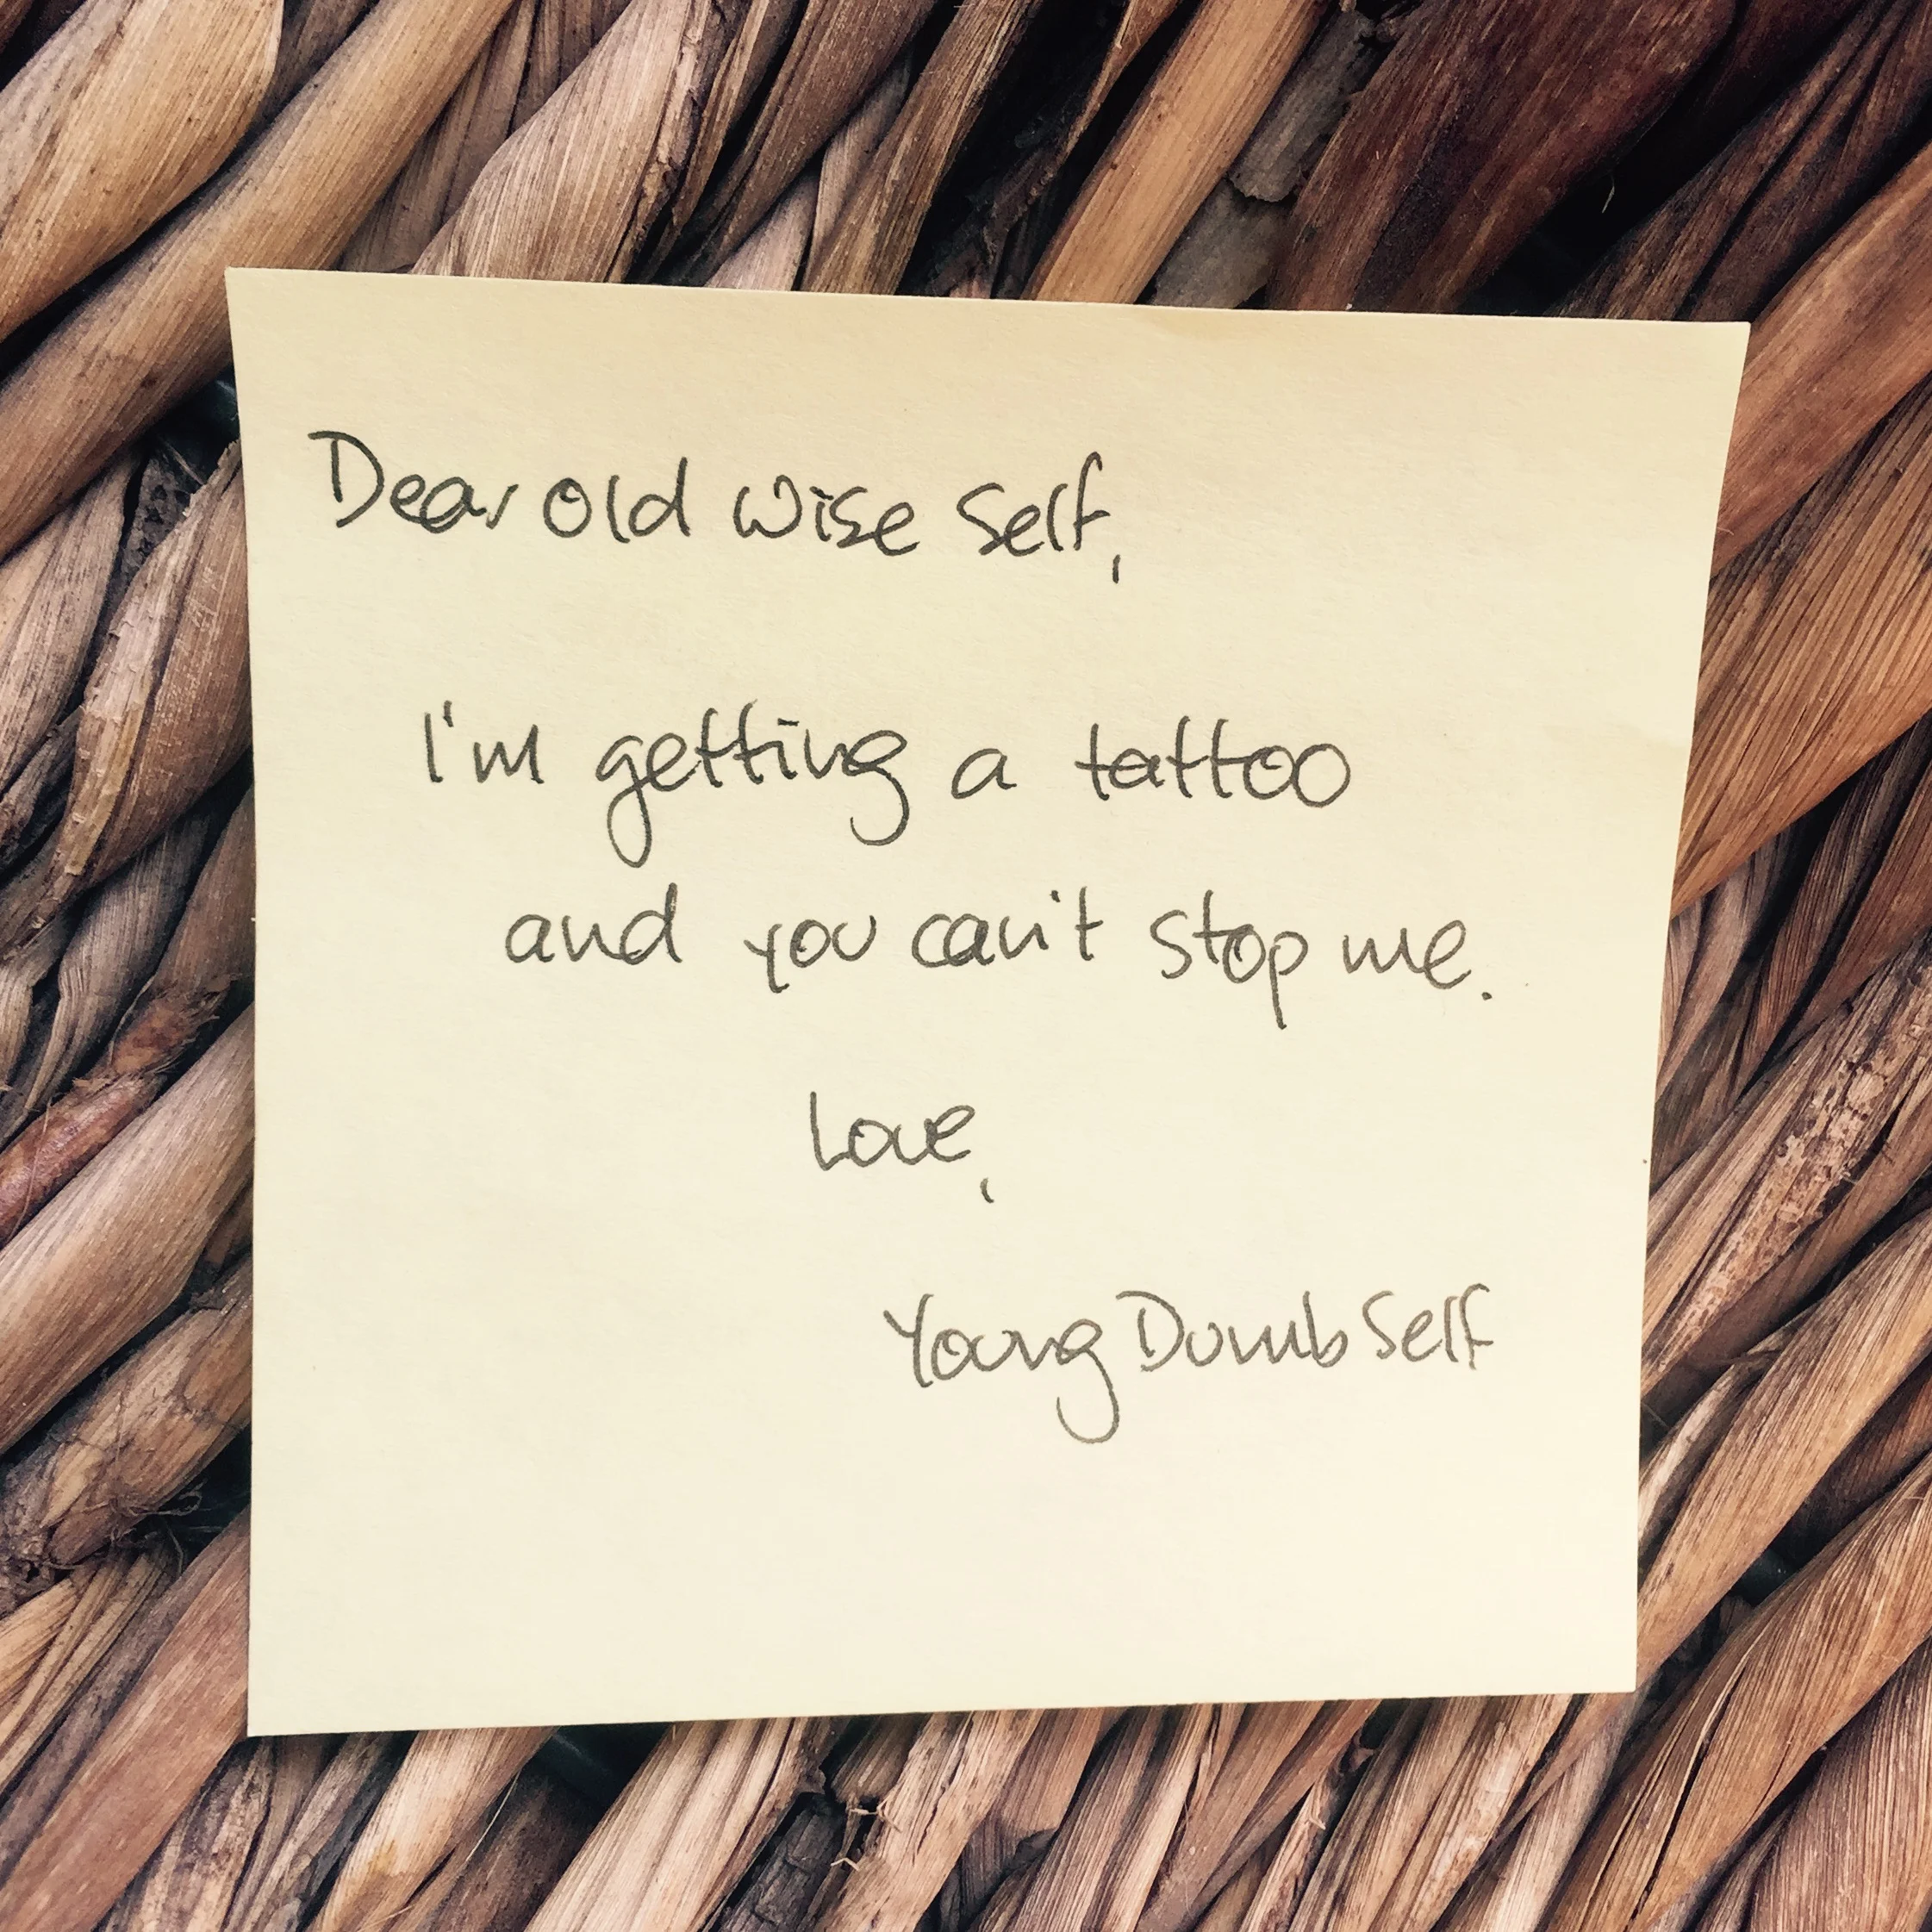 Dear old wise self,
I'm getting a tattoo
and you can't stop me.
Love,
Young Dumb Self